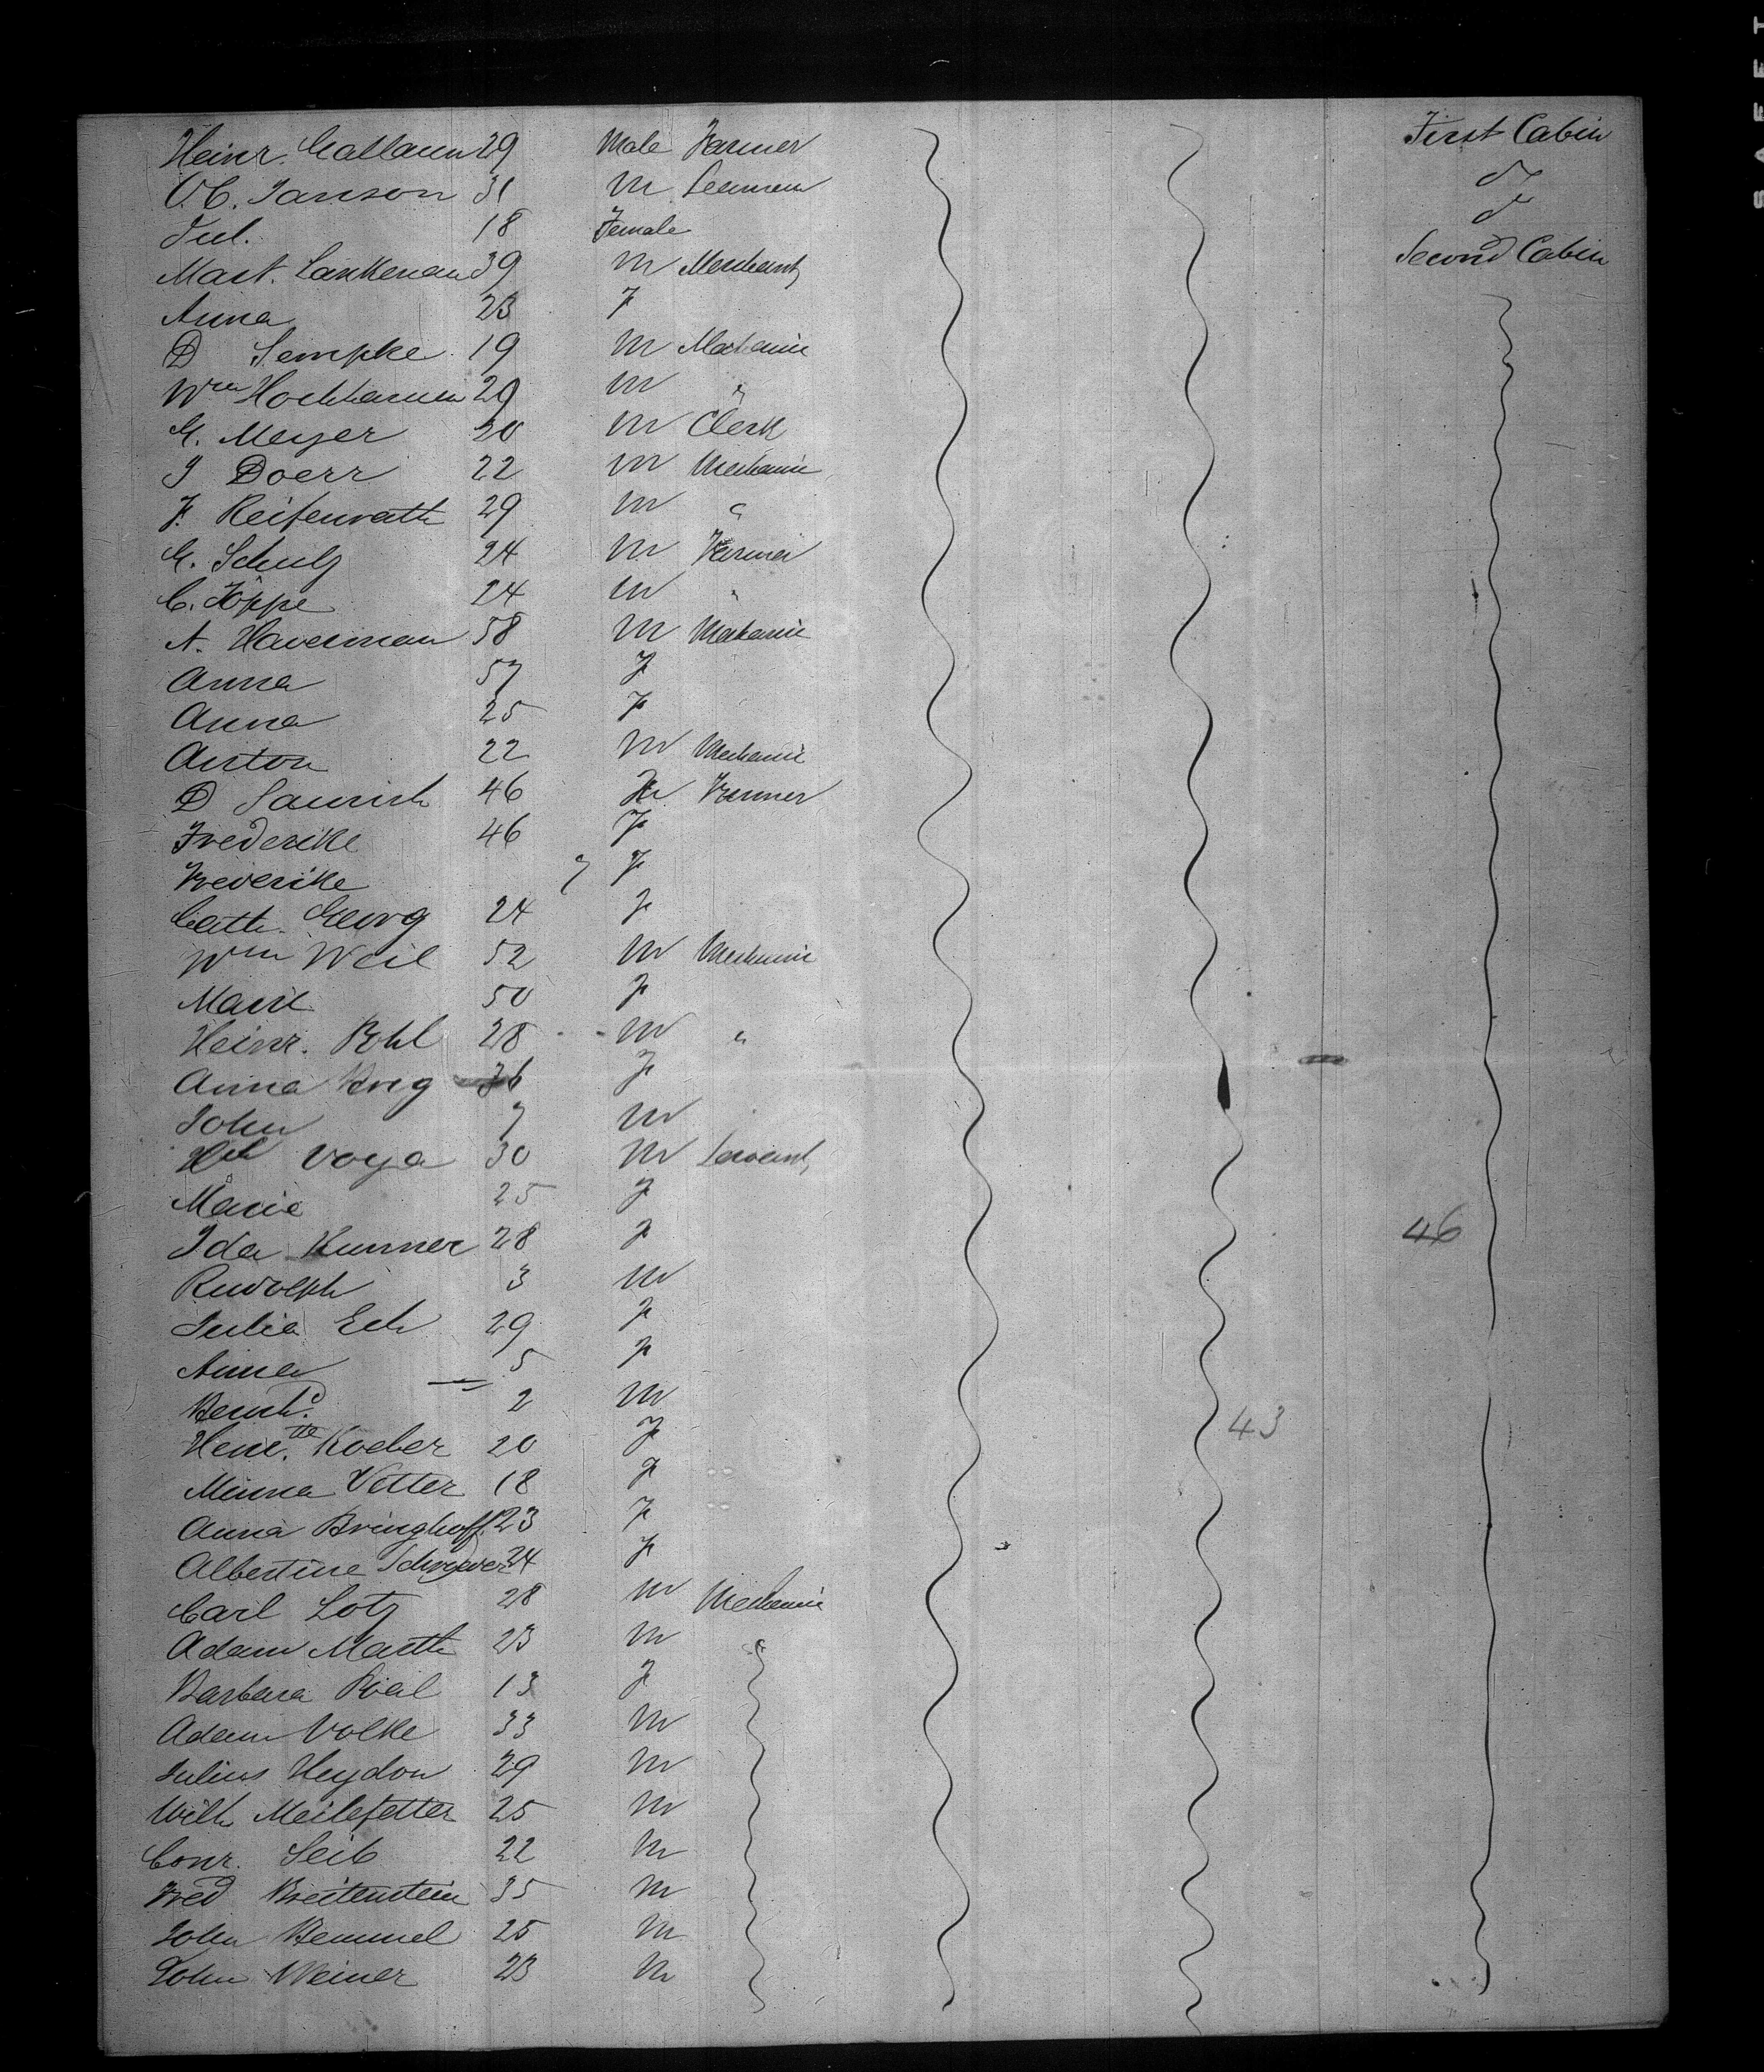 Heinr. Callaun 29 Male Farmer First Cabin
O.C. Janson 31 M Seaman do
Jul. 18 Female do
Mart. Lankenau 39 M Merchant Second Cabin
Anna 23 F
D Sempke 19 M Mechanic
Wm Hochhaum 29 M "
G. Meyer 20 M Clerk
J Doerr 22 M Mechanic
F. Reifenrath 29 M "
G. Schulz 24 M Farmer
C. Höppe 24 M "
A. Haverman 58 M Mechanic
Anna 57 F
Anna 25 F
Anton 22 M Mechanic
D 46 M Farmer
Frederike 46 F
Frederike 7 F
Cath. Georg 24 F
Wm Weil 52 M Mechanic
Marie 50 F
Heinr. Pohl 28 M "
Anna Krug 36 F
John 7 M
Hch Voya 30 M Servant
Marie 25 F
Ida Kummer 28 F 46
Rudolph 3 M
Julia Eck 29 F
Anna 5 F
Bernhd. 2 M
43
Henr.tte Koeber 20 F
Minna Vetter 18 F
Anna Bringhoff 23 F
Albertine 24 F
Carl Lotz 28 M Mechanic
Adam Marth 23 M "
Barbara 13 F
Adam Volke 33 M
Julius Heydon 29 M
Wilh Meilefetter 25 M
Conr. Seib 22 M
Fred Breitenstein 35 M
John Hemmel 25 M
John Weiner 23 M